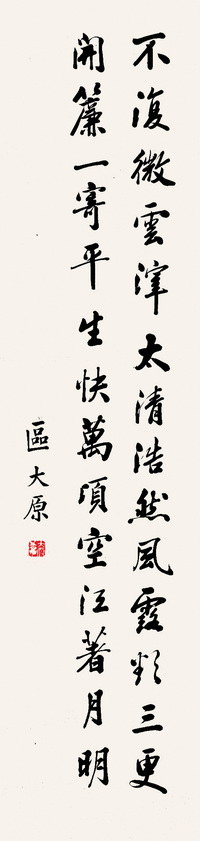 不復微雲滓太清浩然風露欲三更
開簾一寄平生快萬頃空江著月明
區大原